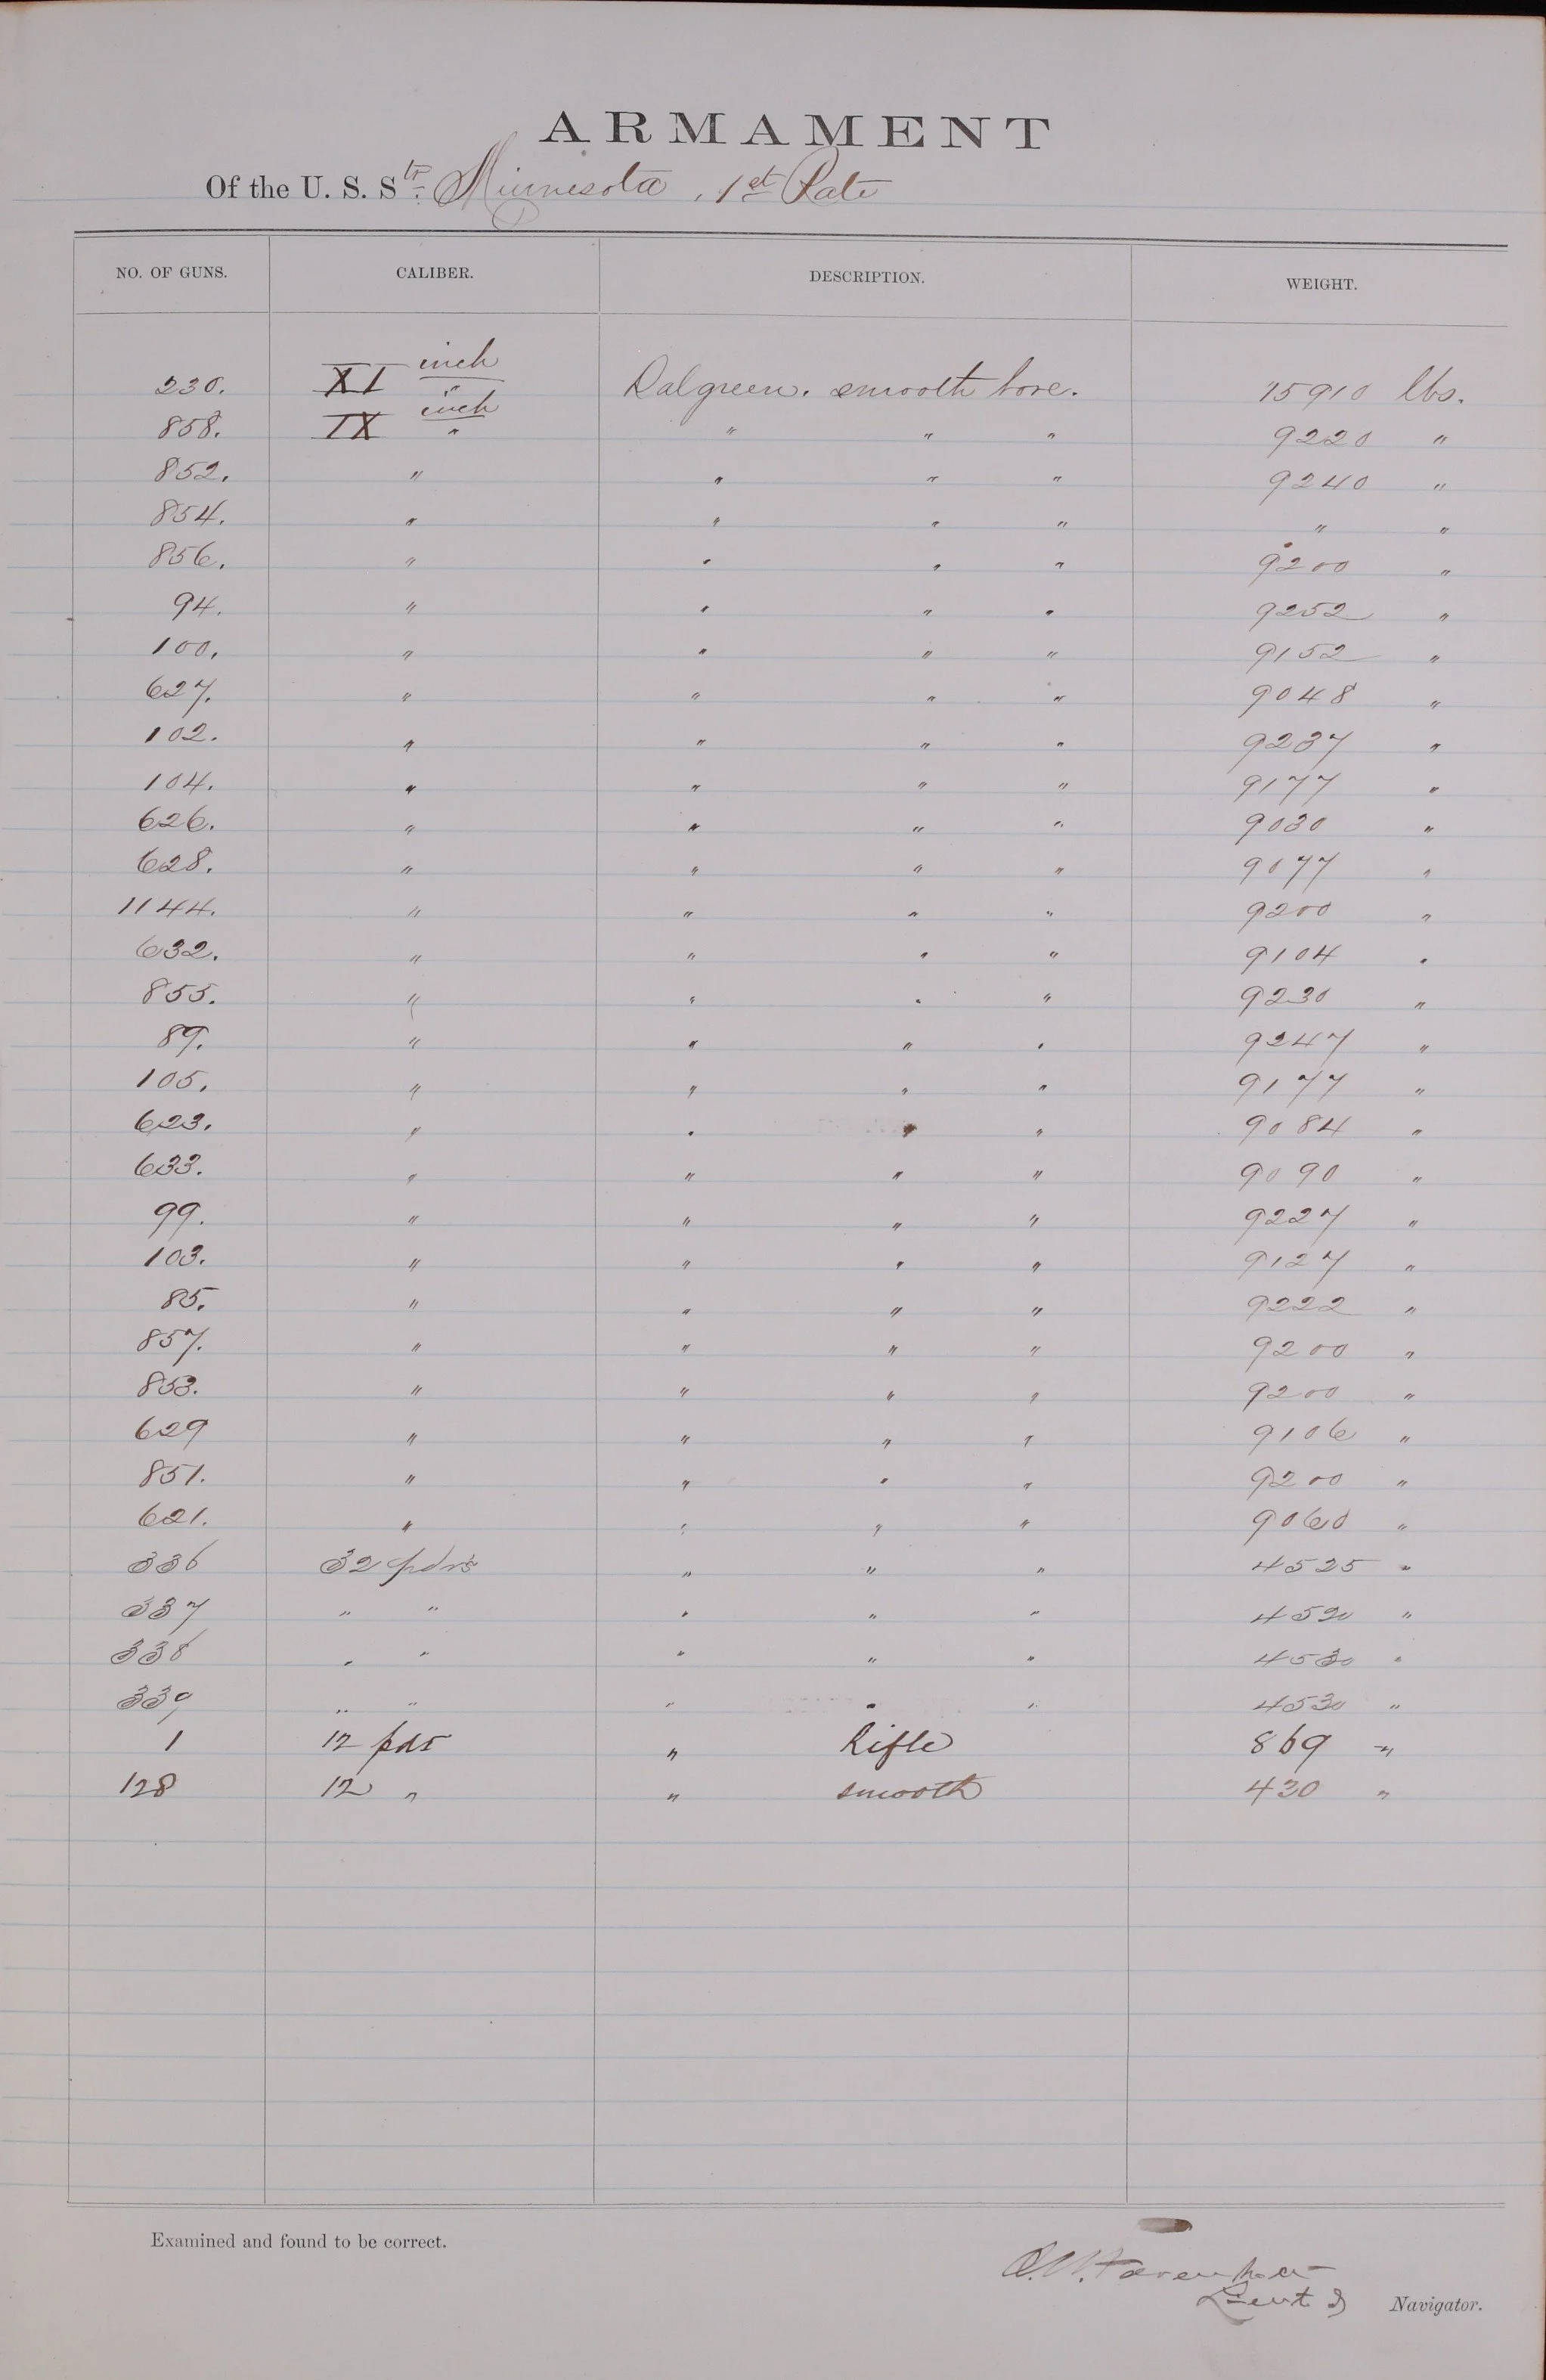 ARMAMENT
Of the U. S. Str Minnesota, 1st Rate
NO. OF GUNS. CALIBER. DESCRIPTION. WEIGHT.
230. XI inch Dalgreen. smooth bore. 15910 lbs.
858. IX inch " " " 9220 "
852. " " " " 9240 "
854. " " " " " "
856. " " " " 9200 "
94. " " " " 9252 "
100. " " " " 9152 "
627. " " " " 9048 "
102. " " " " 9237 "
104. " " " " 9177 "
626. " " " " 9030 "
628. " " " " 9077 "
1144. " " " " 9200 "
632. " " " " 9104 "
855. " " " " 9230 "
89. " " " " 9247 "
105. " " " " 9177 "
623. " " " " 9084 "
633. " " " " 9090 "
99. " " " " 9227 "
103. " " " " 9127 "
85. " " " " 9222 "
857. " " " " 9200 "
853. " " " " 9200 "
629 " " " " 9106 "
851. " " " " 9200 "
621. " " " " 9060 "
336 32 pdrs " " " 4525 "
337 " " " " " 4520 "
338 " " " " " 4530 "
339 " " " " " 4530 "
1 12 pdr " Rifle 869 "
128 12 " " smooth 430 "
Examined and found to be correct.
Lieut & Navigator.